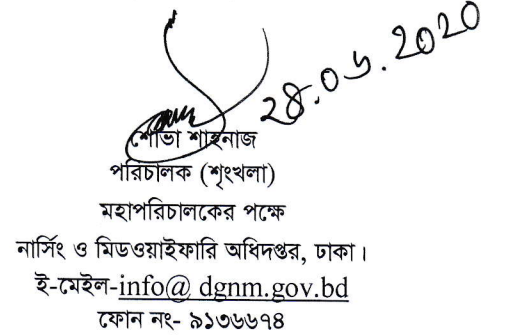 ২৪.০৬.২০২০
শোভা শাহনাজ
পরিচালক (শৃংখলা)
মহাপরিচালকের পক্ষে
নার্সিং ও মিডওয়াইফারি অধিদপ্তর, ঢাকা।
ই-মেইল-info@ dgnm.gov.bd
ফোন নং- ৯১৩৬৬৭৪